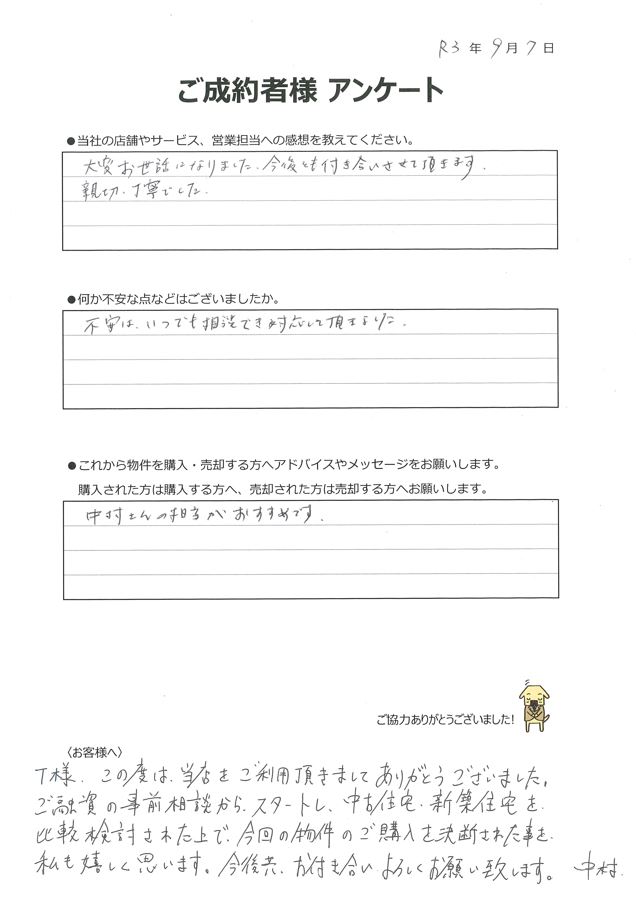 R3年9月7日
ご成約者様 アンケート
●当社の店舗やサービス、営業担当への感想を教えてください。
大変お世話になりました、今後とも付き合いさせて頂きます.
親切、丁寧でした.
●何か不安な点などはございましたか。
不安は、いつでも相談でき対応して頂きました.
●これから物件を購入・売却する方へアドバイスやメッセージをお願いします。
購入された方は購入する方へ、売却された方は売却する方へお願いします。
中村さんの担当がおすすめです.
ご協力ありがとうございました!
〈お客様へ〉
T様. この度は、当店をご利用頂きましてありがとうございました。
ご融資の事前相談から、スタートし、中古住宅・新築住宅を
比較検討された上で、今回の物件のご購入を決断された事を
私も嬉しく思います。今後共、お付き合いよろしくお願い致します。 中村